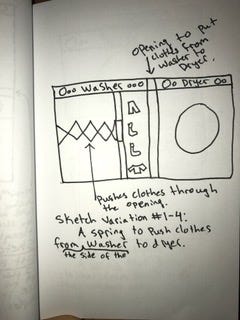 opening to put
clothes from
washer to
Dryer.
Ooo Washer ooo
Oo Dryer oo
Pushes clothes through
the opening.
Sketch Variation #1-4:
A spring to push clothes
from washer to dryer.
the side of the